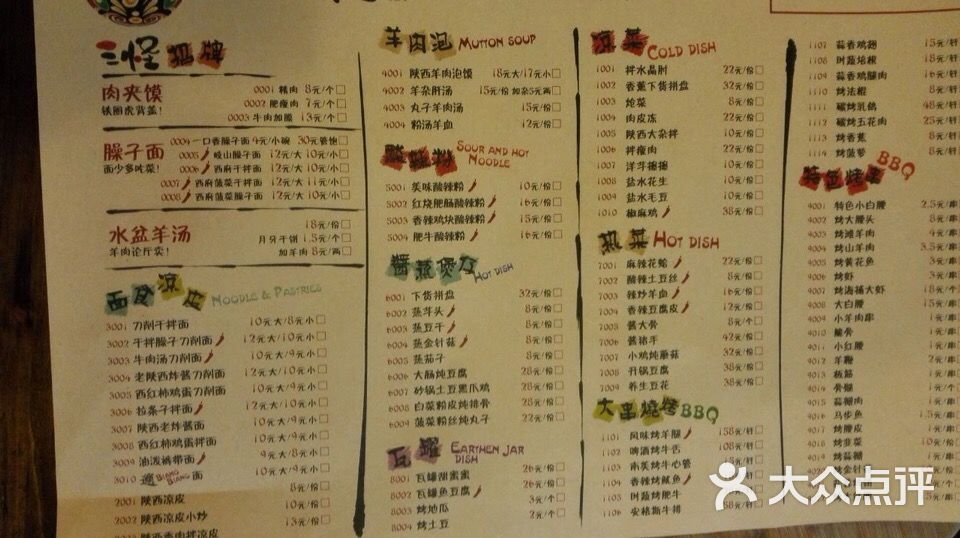 三怪招牌
肉夹馍
铁圈虎背盖!
0001 精肉 8元/个
0002 肥瘦肉 7元/个
0003 牛肉加膜 13元/个
臊子面
面少多吃菜!
0004 一口香臊子面 4元/小碗 30元管饱
0005 岐山臊子面 12元/大 10元/小
0006 西府干拌面 12元/大 10元/小
0007 西府菠菜干拌面 12元/大 11元/小
0008 西府菠菜臊子面 12元/大 10元/小
水盆羊汤
羊肉论斤卖!
18元/份
月牙干饼 1.5元/个
加羊肉 8元/两
面食凉皮 NOODLE & PASTRIES
3001 刀削干拌面 10元大/8元小
3002 干拌臊子刀削面 12元大/10元小
3003 牛肉汤刀削面 10元大/9元小
3004 老陕西炸酱刀削面 12元大/10元小
3005 西红柿鸡蛋刀削面 10元大/9元小
3006 拉条子拌面 12元大/10元小
3007 陕西老炸酱面 10元大/9元小
3008 西红柿鸡蛋拌面 10元大/9元小
3009 油泼裤带面 9元大/8元小
3010 BIANG BIANG 面 10元大/9元小
2001 陕西凉皮 8元/份
2002 陕西凉皮小炒 10元/份
13元/份
羊肉泡 MUTTON SOUP
4001 陕西羊肉泡馍 18元大/17元小
4002 羊杂肝汤 15元/份 加杂5元两
4003 丸子羊肉汤 15元/份
4004 粉汤羊血 12元/份
酸辣粉 SOUR AND HOT NOODLE
5001 美味酸辣粉 10元/份
5002 红烧肥肠酸辣粉 16元/份
5003 香辣鸡块酸辣粉 15元/份
5004 肥牛酸辣粉 16元/份
酱蒸煲 HOT DISH
6001 下货拼盘 32元/份
6002 蒸芋头 8元/份
6003 蒸豆干 8元/份
6004 蒸金针菇 8元/份
6005 蒸茄子 8元/份
6006 大肠炖豆腐 28元/份
6007 砂锅土豆黑爪鸡 28元/份
6008 白菜粉皮炖排骨 28元/份
6009 菠菜粉丝炖丸子 22元/份
瓦罐 EARTHEN JAR DISH
8001 瓦罐甜蜜蜜 26元/份
8002 瓦罐鱼豆腐 26元/份
8003 烤地瓜 3元/个
8004 烤土豆
凉菜 COLD DISH
1001 拌水晶肘 22元/份
1002 香薰下货拼盘 32元/份
1003 炝菜 8元/份
1004 肉皮冻 8元/份
1005 陕西大杂拌 10元/份
1006 拌瘦肉 22元/份
1007 洋芋搋搋 10元/份
1008 盐水花生 10元/份
1009 盐水毛豆 10元/份
1010 椒麻鸡 38元/份
热菜 HOT DISH
7001 麻辣花蛤 22元/份
7002 酸辣土豆丝 8元/份
7003 辣炒羊血 16元/份
7004 香辣豆腐皮 12元/份
7005 酱大骨 8元/个
7006 酱猪手 42元/份
7007 小鸡炖蘑菇 32元/份
7008 丹锅豆腐 38元/份
7009 养生豆花 38元/份
大串烧烤 BBQ
1101 风味烤羊腿 158元/扦
1102 啤酒烤牛舌
1103 南美烤牛心管 15元/扦
1104 香辣烤鱿鱼
1105 时蔬烤肥牛
1106 安格斯牛排
1107 蒜香鸡翅 15元/扦
1108 时蔬培根
1109 蒜香鸡腿肉 16元/扦
1110 烤法棍 8元/扦
1111 碳烤乳鸽 48元/扦
1112 碳烤五花肉 25元/扦
1113 烤香蕉 8元/扦
1114 烤菠萝 8元/扦
特色烧烤 BBQ
9001 特色小白腰 2.5元/串
9002 烤大腰头 8元/串
9003 烤滩羊肉 4元/串
9004 烤山羊肉 3.5元/串
9005 烤黄花鱼
9006 烤虾 3元/串
9007 烤海捕大虾 18元/串
9008 大白腰 15元/串
9009 小羊肉串 1元/串
9010 脆骨
9011 小红腰 1元/串
9012 羊鞭
9013 板筋
9014 骨髓
9015 蒜瓣肉
9016 马步鱼
9017 烤腰皮
9018 烤韭菜
9019 烤蒜瓣
大众点评